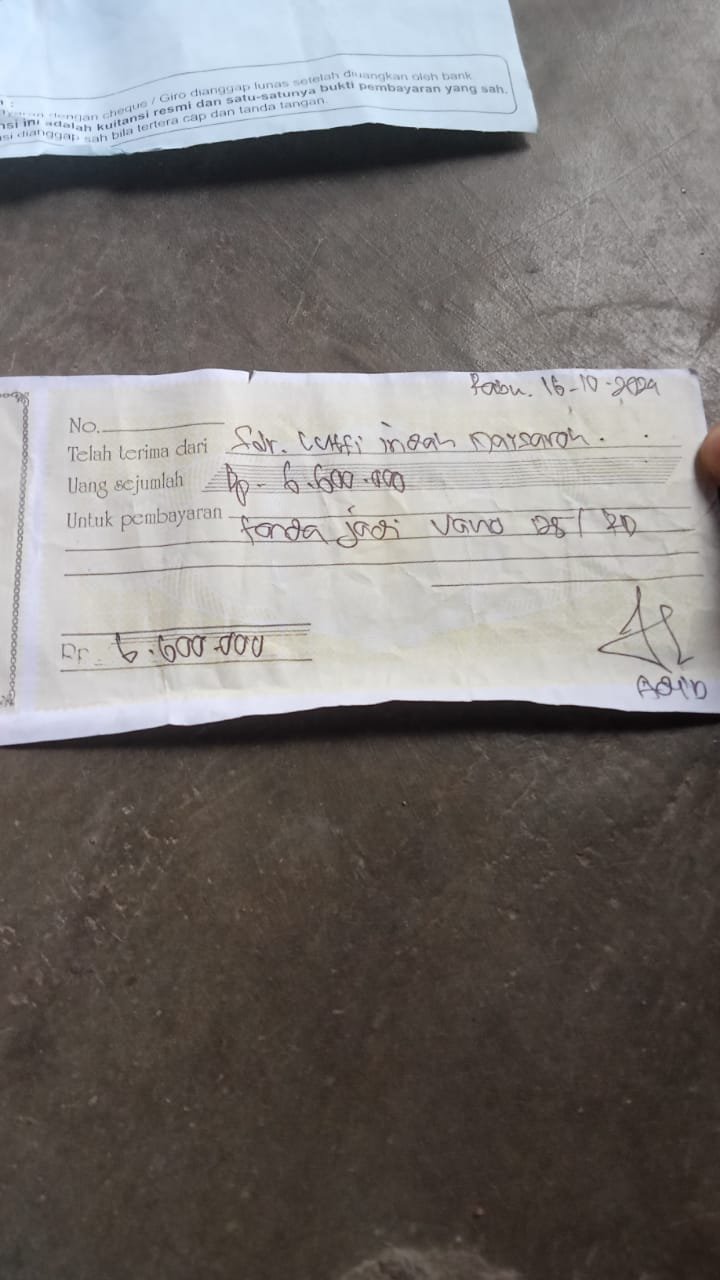 dengan cheque / Giro dianggap lunas setelah diuangkan oleh bank.
ini adalah kuitansi resmi dan satu-satunya bukti pembayaran yang sah.
dianggap sah bila tertera cap dan tanda tangan.
Rabu. 16-10-2024
No.
Telah terima dari Sdr. Lutfi indah
Uang sejumlah Rp - 6.600.000
Untuk pembayaran tanda jadi vario 125 / 20
Rp. 6.600.000